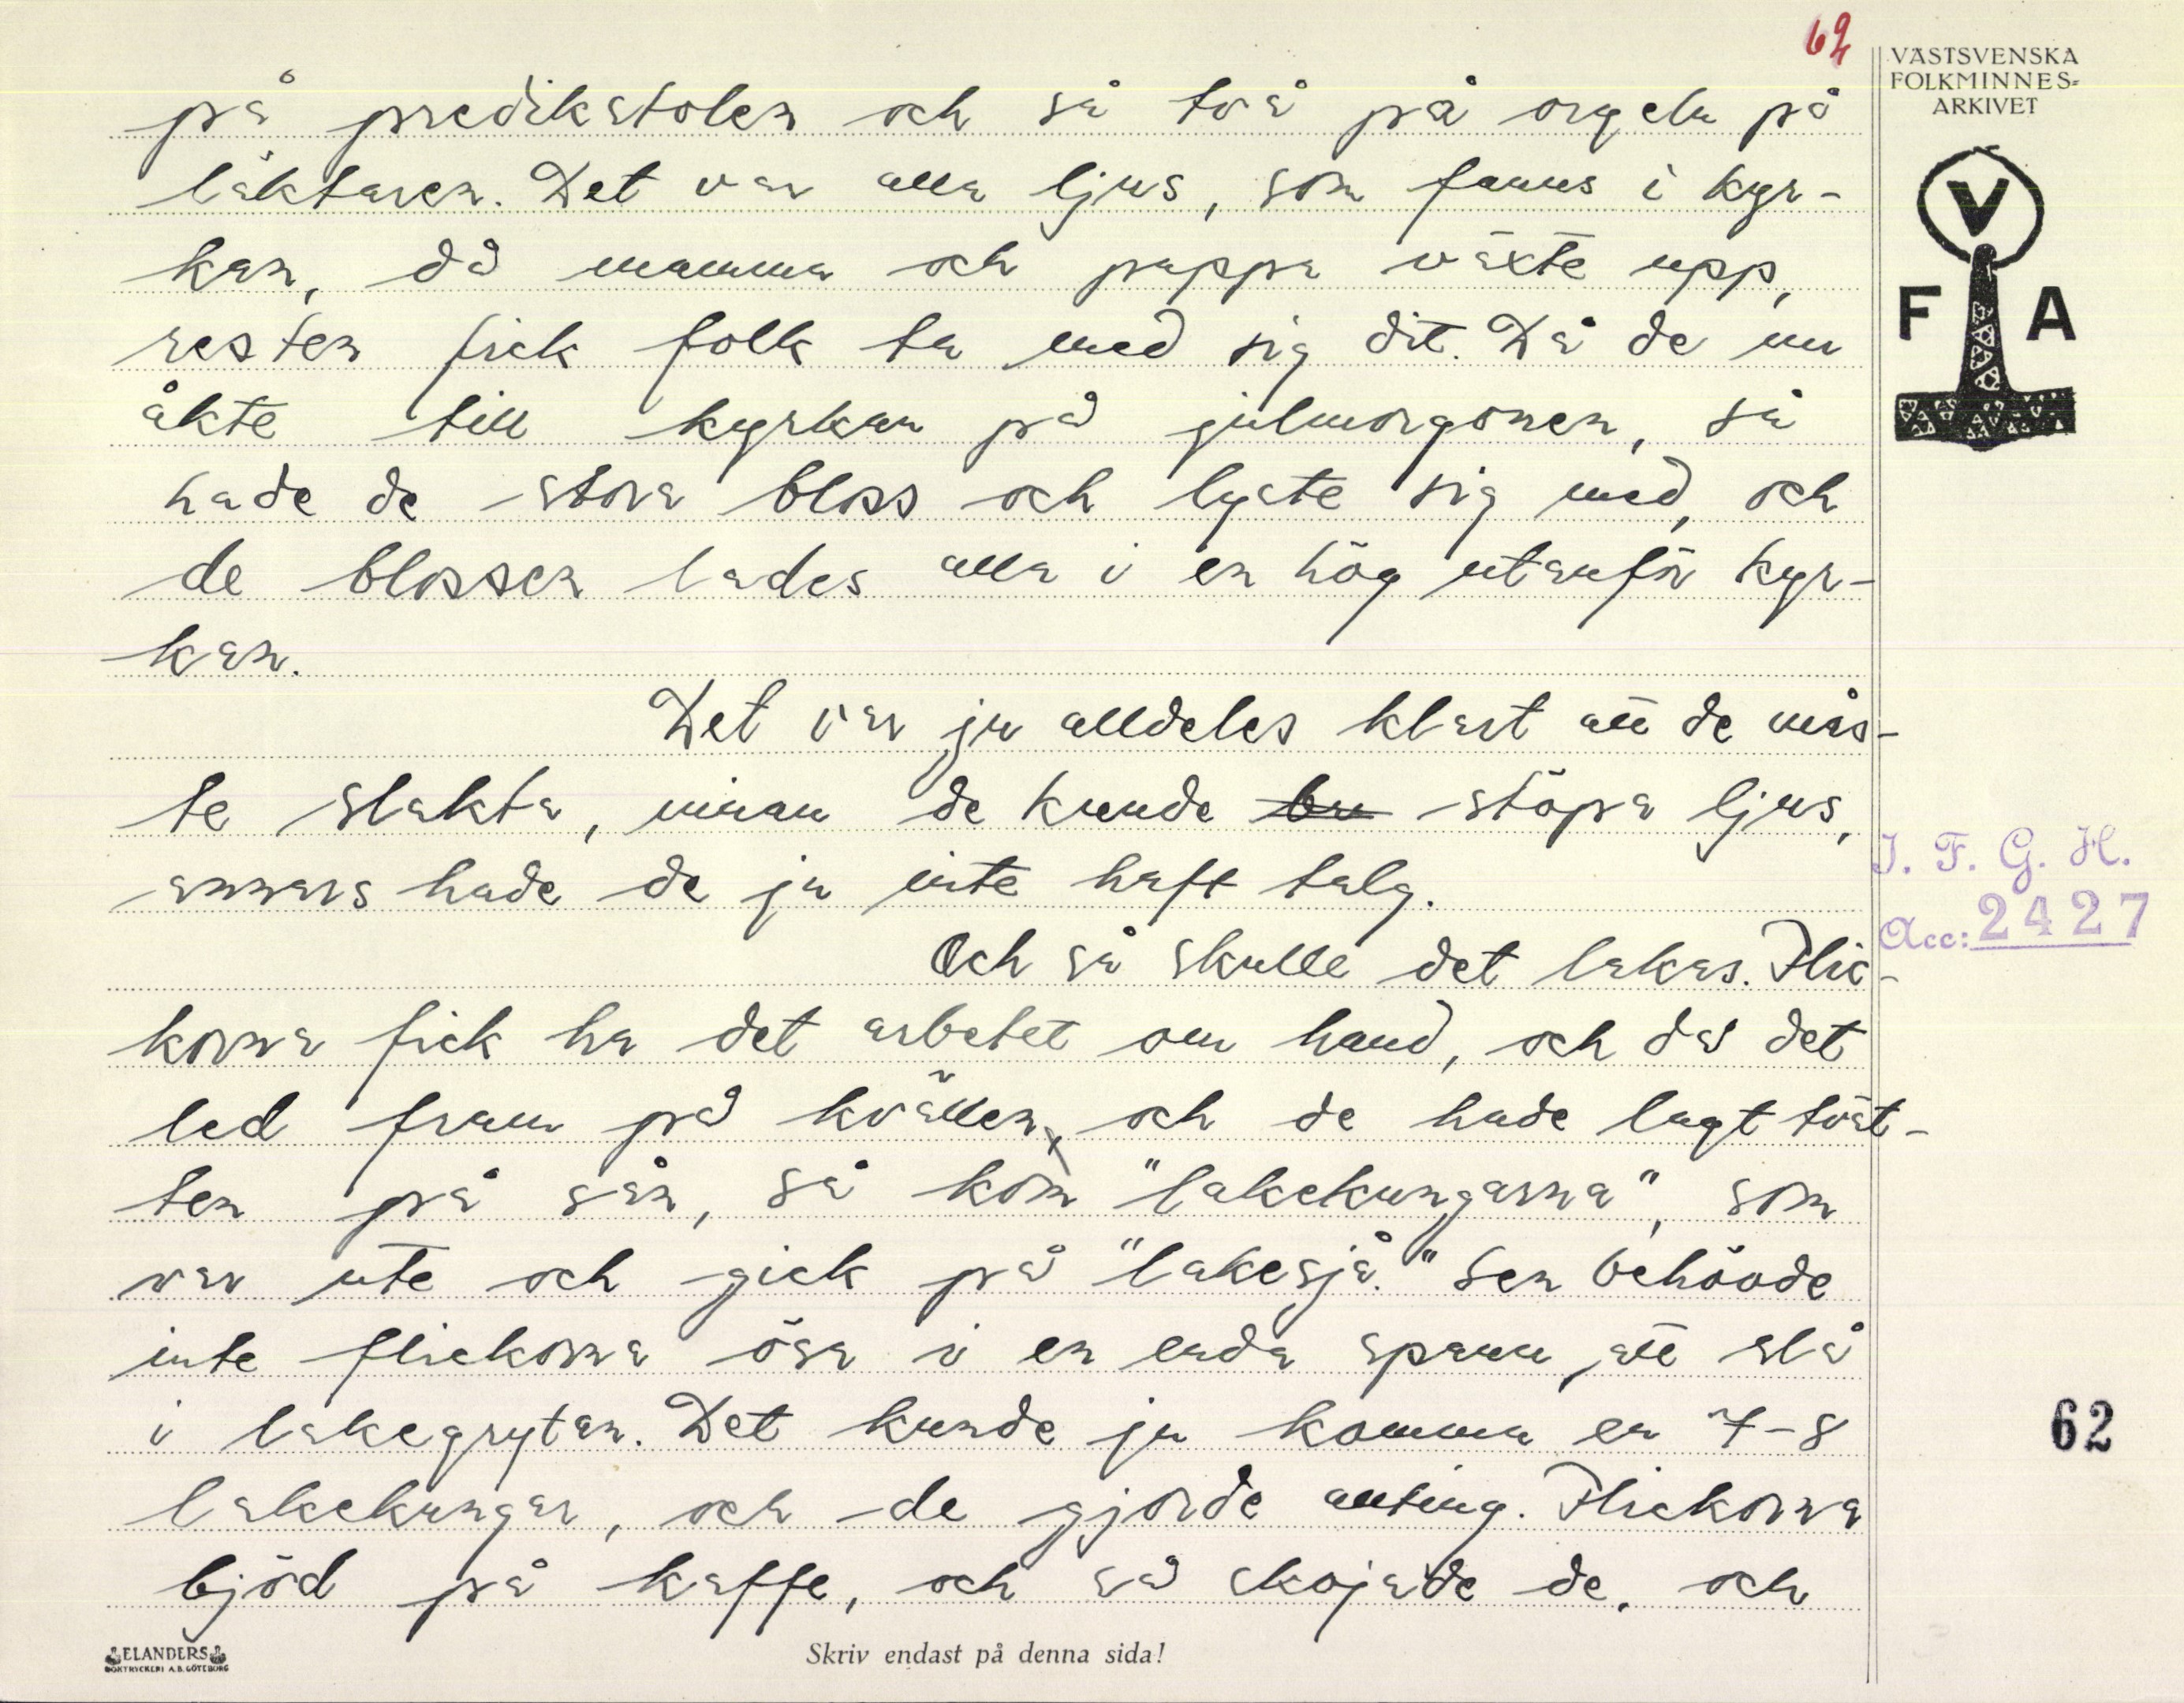 62
VÄSTSVENSKA
FOLKMINNES-
ARKIVET
V
F A
på predikstolen och så två på orgeln på
läktaren. Det var alla ljus, som fanns i kyr-
kan, då mamma och pappa växte upp,
resten fick folk ta med sig dit. Då de nu
åkte till kyrkan på julmorgonen, så
hade de stora bloss och lyste sig med, och
de blossen lades alla i en hög utanför kyr-
kan.
Det var ju alldeles klart att de mås-
te slakta, innan de kunde stöpa ljus,
annars hade de ju inte haft talg.
Och så skulle det lakas. Flic-
korna fick ha det arbetet om hand, och då det
led fram på kvällen, och de hade lagt tvät-
ten på sån, så kom "lakekungarna", som
var ute och gick på "lakesjå." Sen behövde
inte flickorna ösa i en enda spann att slå
i lakegrytan. Det kunde ju komma en 7-8
lakekungar, och de gjorde allting. Flickorna
bjöd på kaffe, och så skojade de, och
I. F. G. H.
Acc: 2427
62
ELANDERS
BOKTRYCKERI A.B. GÖTEBORG
Skriv endast på denna sida!